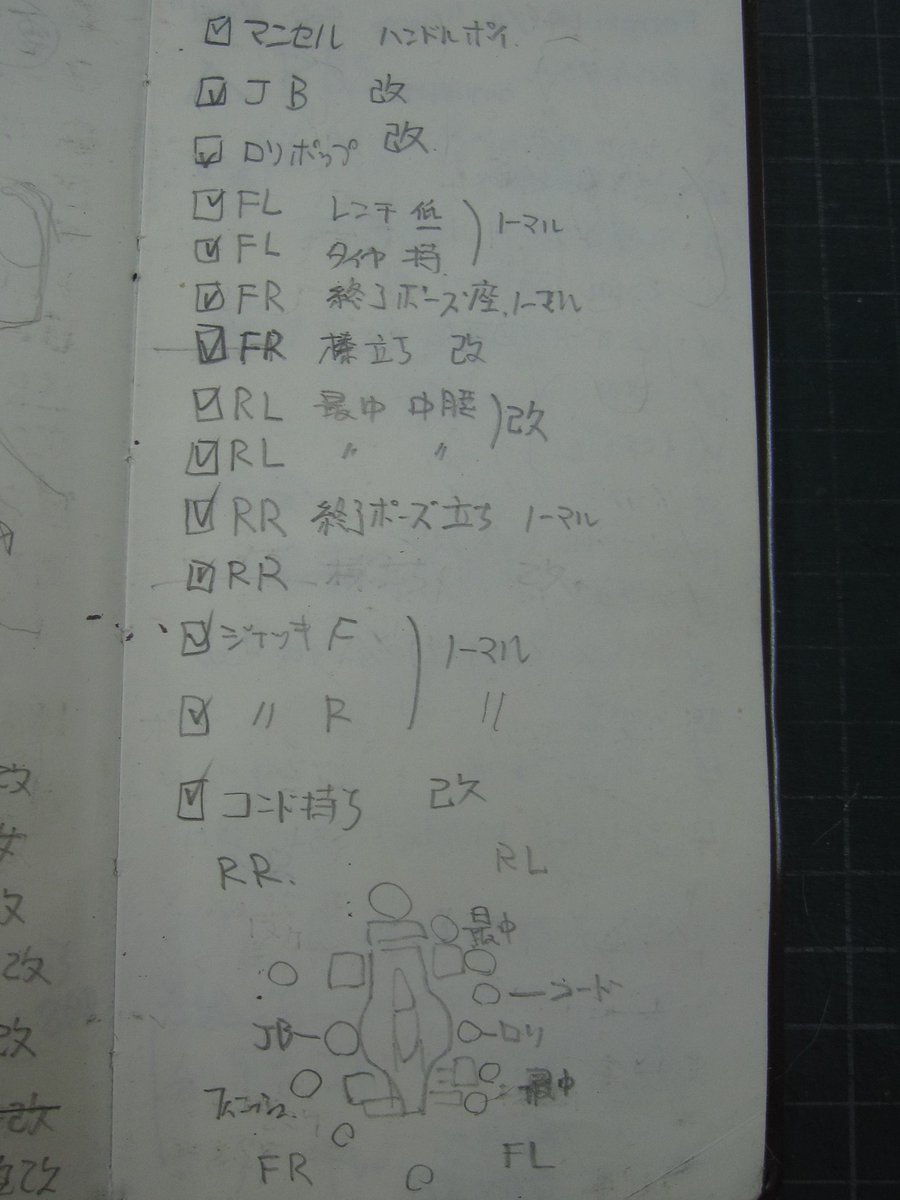 ☑ マンセル ハンドルポイ
☑ JB 改
☑ ロリポップ 改
☑ FL レンチ 低
☑ FL タイヤ 持 ノーマル
☑ FR 終了ポーズ座、ノーマル
☑ FR 棒立ち 改
☑ RL 最中 中腰
☑ RL 〃 〃 改
☑ RR 終了ポーズ立ち ノーマル
☑ RR 棒立ち 改
☑ ジャッキ F ノーマル
☑ 〃 R 〃
☑ コード持ち 改
RR. RL
最中
コード
JB ロリ
最中
FR FL
改
改
改
改
改